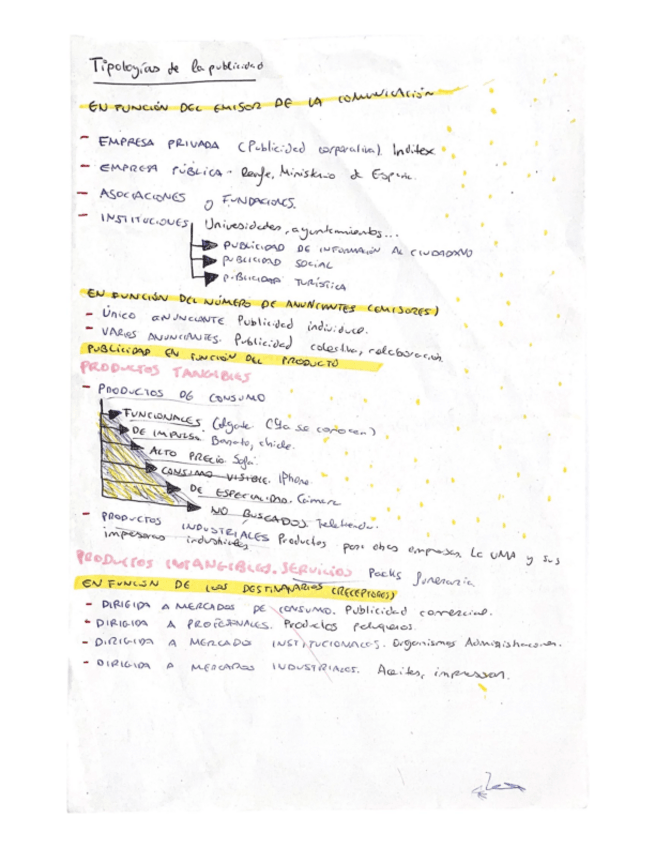 Tipologías de la publicidad
EN FUNCIÓN DEL EMISOR DE LA COMUNICACIÓN
- EMPRESA PRIVADA (Publicidad corporativa). Inditex
- EMPRESA PÚBLICA - Renfe, Ministerio de España.
- ASOCIACIONES o FUNDACIONES.
- INSTITUCIONES Universidades, ayuntamientos...
PUBLICIDAD DE INFORMACIÓN AL CIUDADANO
PUBLICIDAD SOCIAL
PUBLICIDAD TURÍSTICA
EN FUNCIÓN DEL NÚMERO DE ANUNCIANTES (EMISORES)
- ÚNICO ANUNCIANTE Publicidad individual.
- VARIOS ANUNCIANTES. Publicidad colectiva, colaboración.
PUBLICIDAD EN FUNCIÓN DEL PRODUCTO
PRODUCTOS TANGIBLES
- PRODUCTOS DE CONSUMO
FUNCIONALES Colgate (Ya se conocen)
DE IMPULSO. Bonato, chicle.
ALTO PRECIO. Sofá.
CONSUMO VISIBLE. IPhone
DE ESPECIALIDAD. Cámara
NO BUSCADOS. Teletienda.
- PRODUCTOS INDUSTRIALES Productos para otras empresas. La UMA y sus
impresoras industriales
PRODUCTOS INTANGIBLES. SERVICIOS Packs funeraria
EN FUNCIÓN DE LOS DESTINATARIOS (RECEPTORES)
- DIRIGIDA A MERCADOS DE CONSUMO. Publicidad comercial.
- DIRIGIDA A PROFESIONALES. Productos peluqueros.
- DIRIGIDA A MERCADOS INSTITUCIONALES. Organismos Administraciones.
- DIRIGIDA A MERCADOS INDUSTRIALES. Aceites, impresoras.